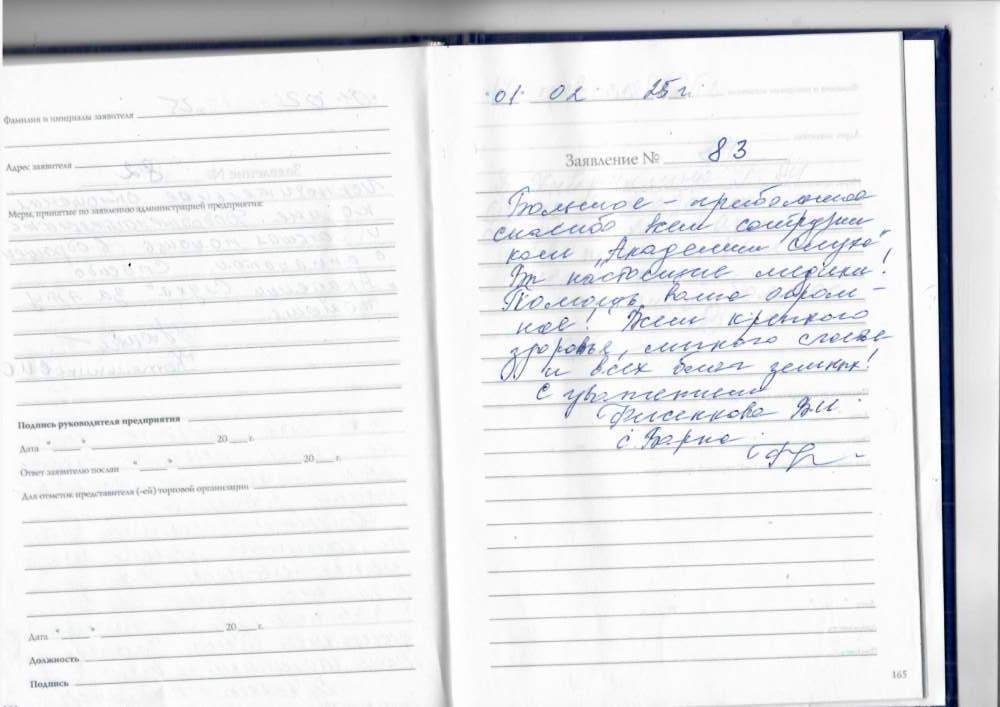 Фамилия и инициалы заявителя
Адрес заявителя
Меры, принятые по заявлению администрацией предприятия:
Подпись руководителя предприятия
Дата "____" ____ 20 ___ г.
Ответ заявителю послан "____" ____ 20 ___ г.
Для отметок представителя (-ей) торговой организации
Дата "____" ____ 20 ___ г.
Должность
Подпись
01. 02. 25 г.
Заявление № 83
Большое – пребольшое
спасибо всем сотрудни
кам „Академии Слуха"
Вы настоящие медики!
Помощь ваша огром –
ное! Всем крепкого
здоровья, много счастья
и всех благ земных!
С уважением
В И
с Варна
165